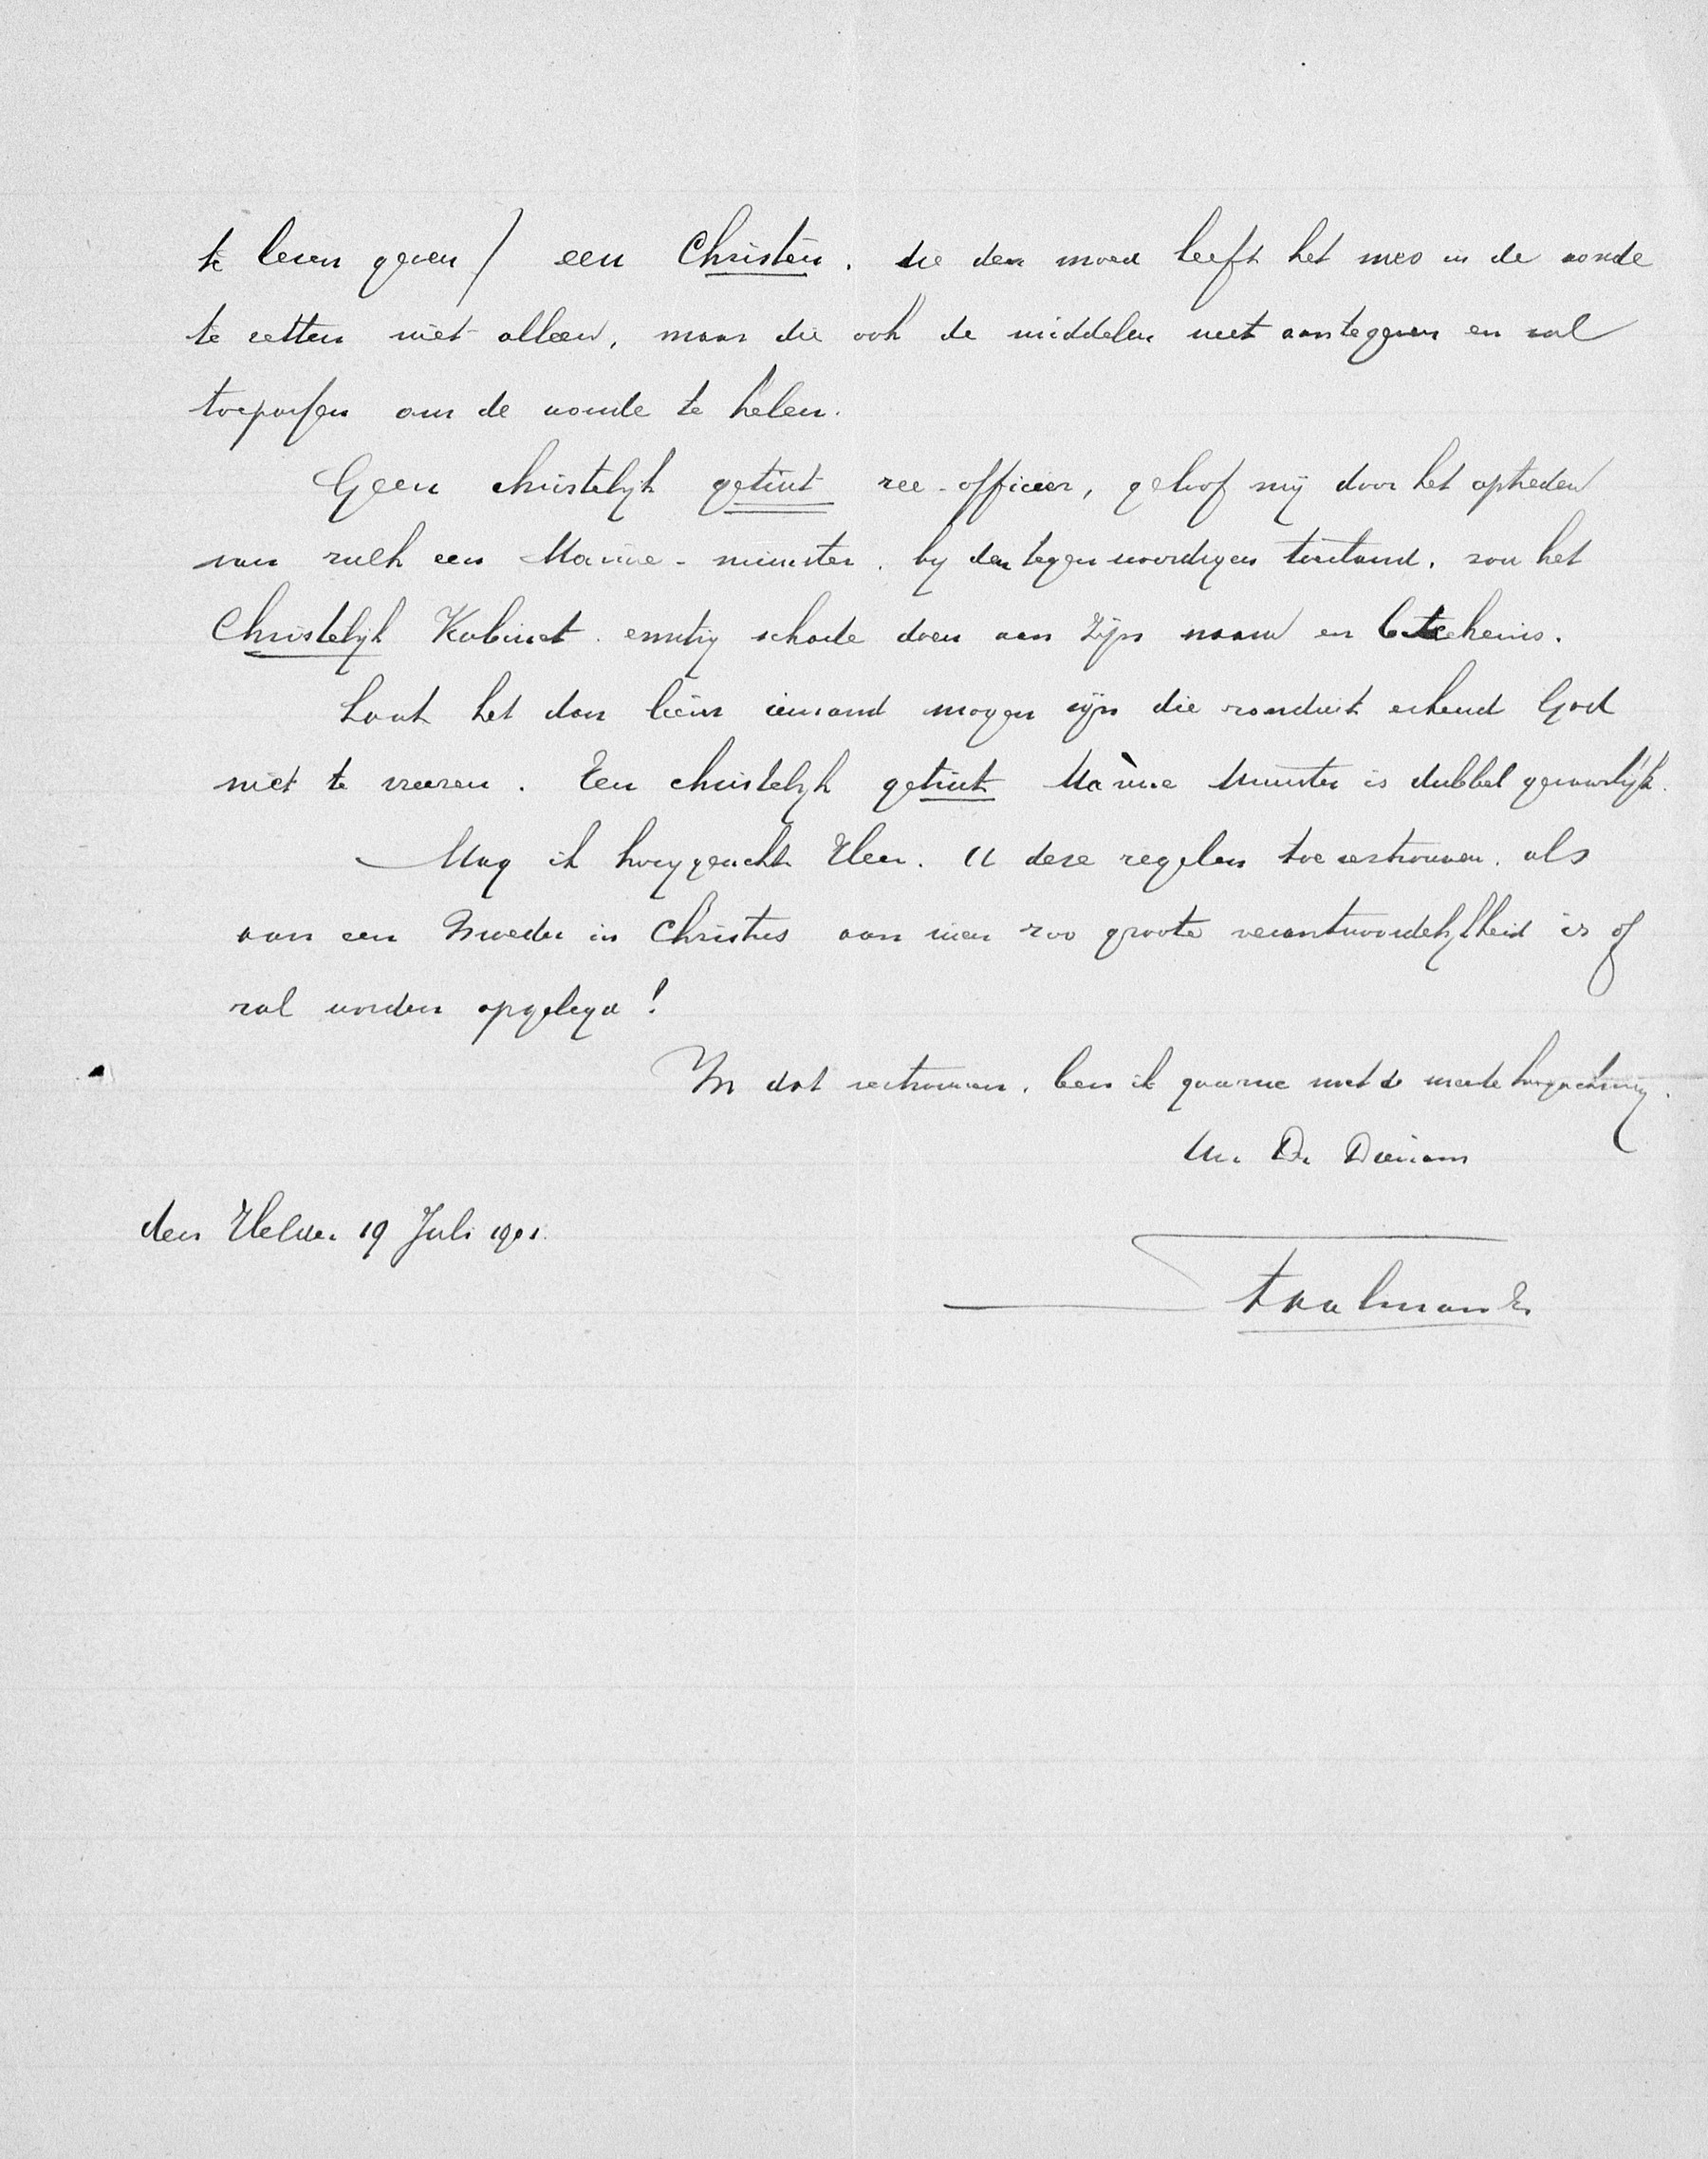 te lezen geven) een Christen. die den moed heeft het mes in de wonde
te zetten niet alleen, maar die ook de middelen weet aantegeven en zal
toepassen om de wonde te helen.
Geen christelijk getint zee-officier, geloof mij door het optreden
van zulk een Marine-minister. bij den tegenwoordigen toestand. zou het
Christelijk Kabinet ernstig schade doen aan zijn naam en beteekenis.
Laat het dan liever iemand mogen zijn die ronduit erkend God
niet te vreezen. Een christelijk getint Marine Minister is dubbel gevaarlijk.
Mag ik hooggeachte Heer. U deze regelen toevertrouwen. als
aan een Broeder in Christus aan wien zoo groote verantwoordelijkheid is of
zal worden opgelegd!
In dat vertrouwen. ben ik gaarne met de meeste hoogachting.
Uw Dw Dienaar
den Helder 19 Juli 1901.